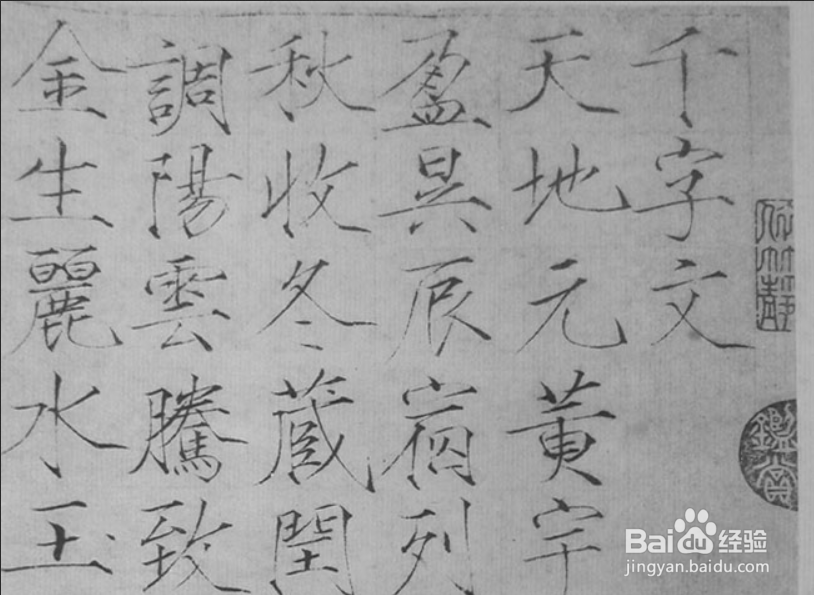 千字文
天地元黄宇
盈昃辰宿列
秋收冬蔵閏
調陽雲騰致
金生麗水玉
Baidu经验
jingyan.baidu.com